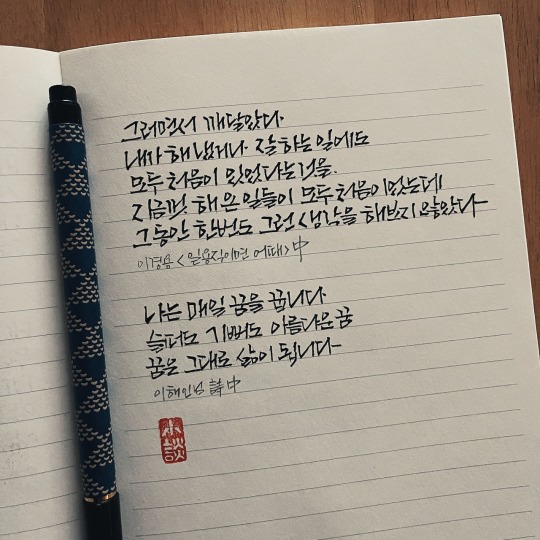 그러면서 깨달았다.
내가 해냈거나 잘하는 일에도
모두 처음이 있었다는 것을.
지금껏 해온 일들이 모두 처음이었는데
그동안 한번도 그런 생각을 해보지 않았다
이경용 <일용직이면 어때> 中
나는 매일 꿈을 꿉니다
슬퍼도 기뻐도 아름다운 꿈
꿈은 그대로 삶이 됩니다
이해인님 詩 中
談